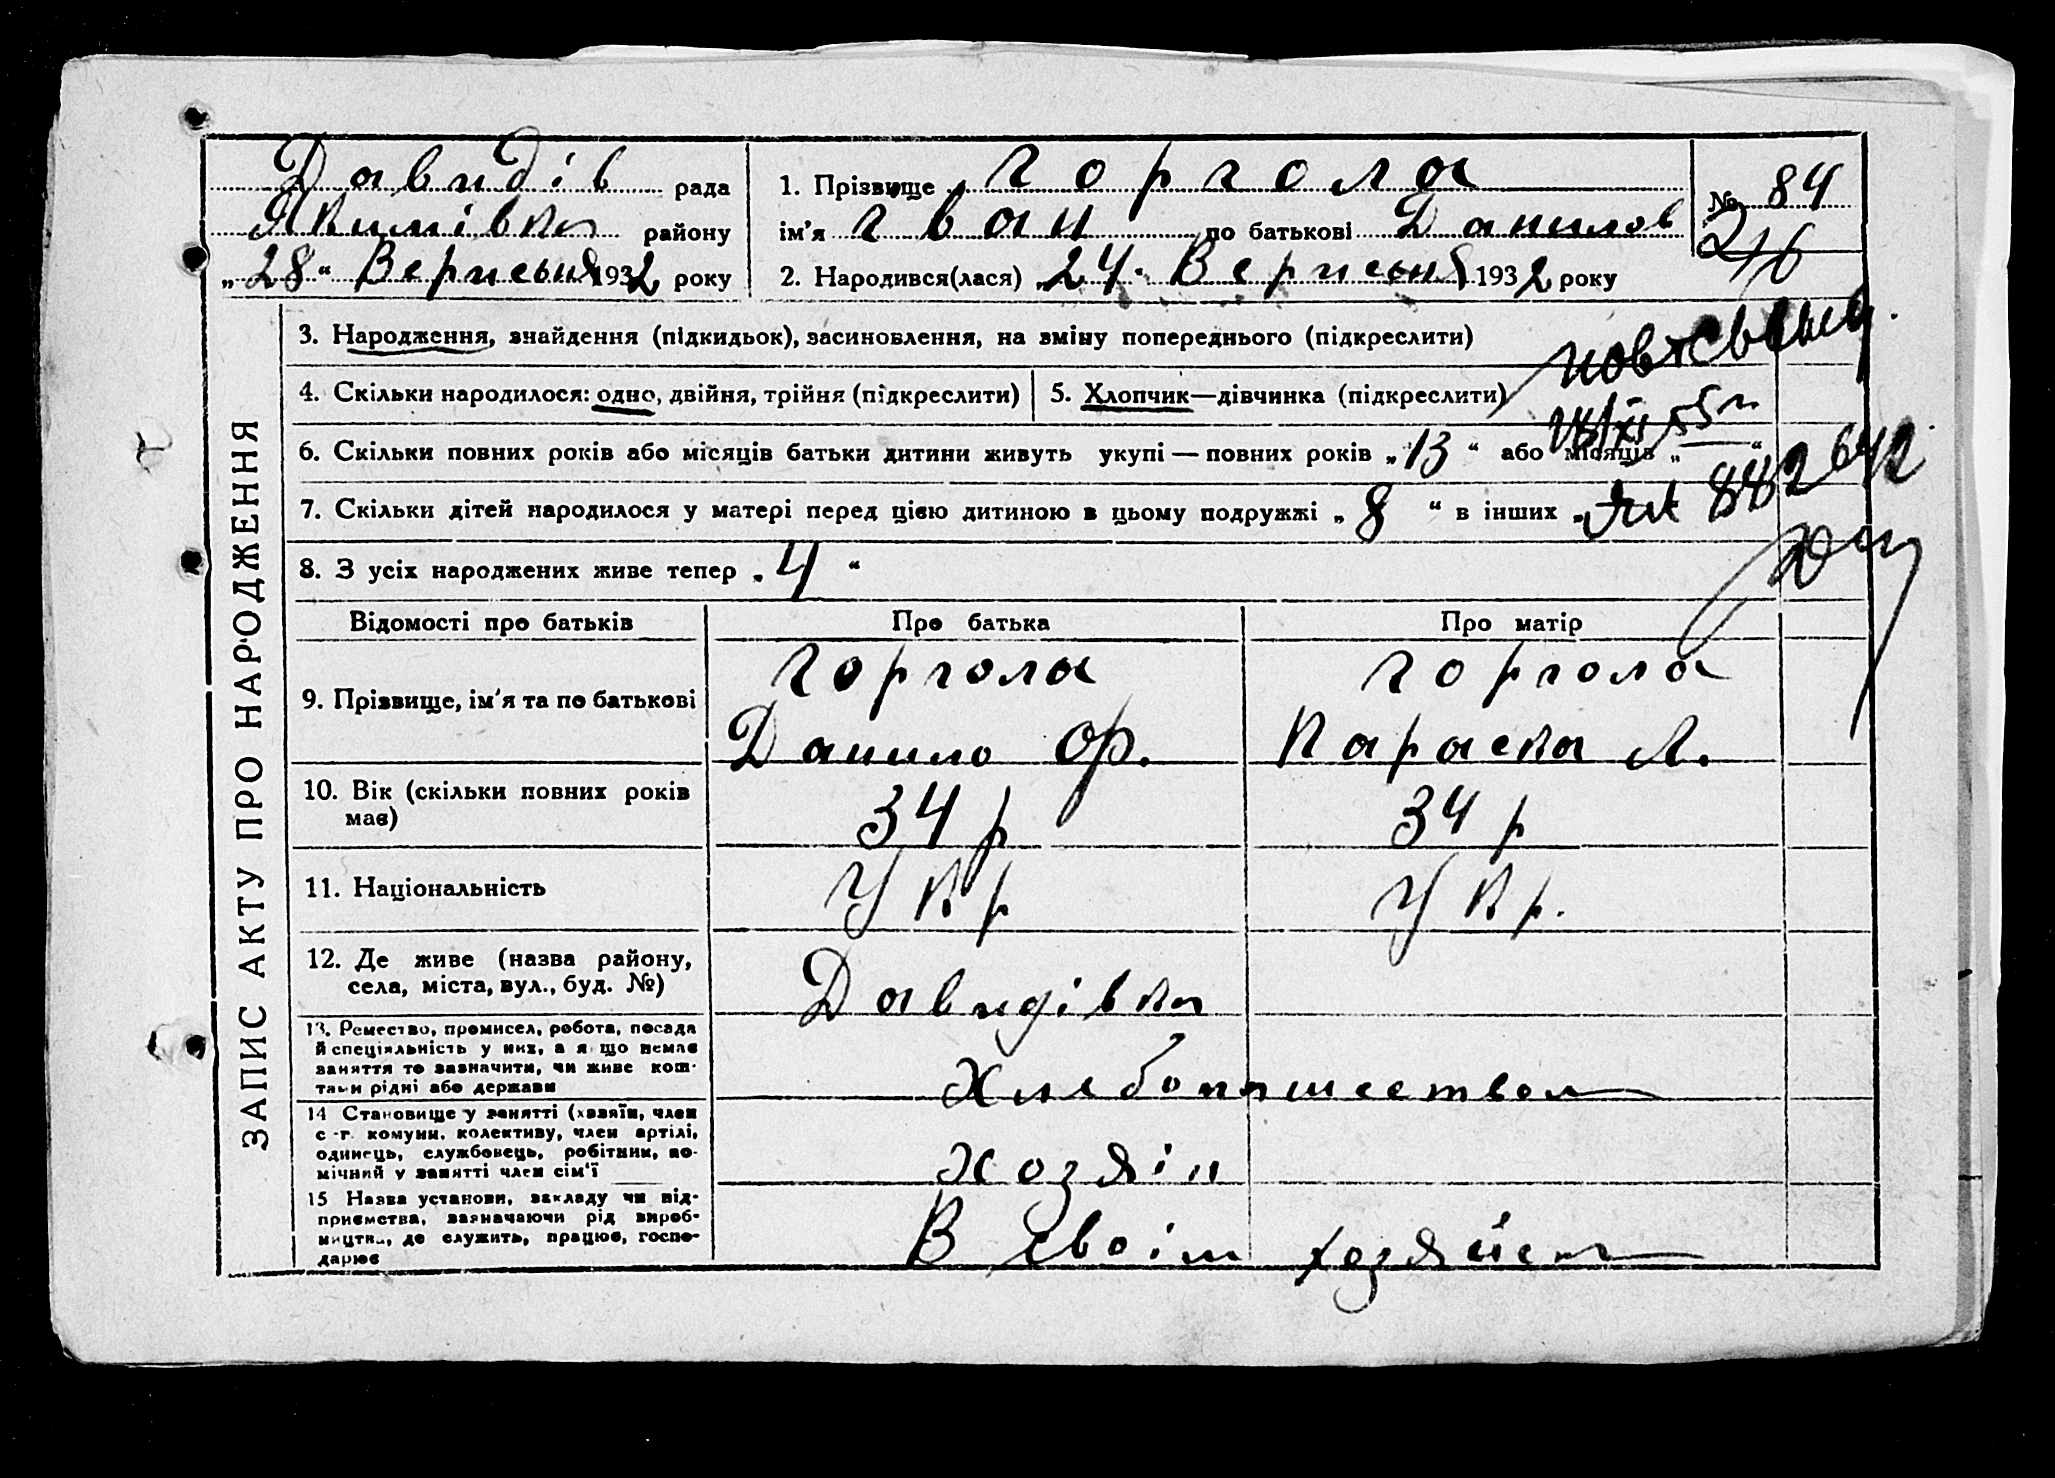 ЗАПИС АКТУ ПРО НАРОДЖЕННЯ
Давидів рада
Якимівка району
„28“ Вересня 1932 року
1. Прізвище Горгола
ім'я Іван по батькові Данилов
2. Народився(лася) „24“ Вересня 1932 року
№ 84
216
3. Народження, знайдення (підкидьок), засиновлення, на зміну попереднього (підкреслити)
4. Скільки народилося: одно, двійня, трійня (підкреслити)
5. Хлопчик—дівчинка (підкреслити)
6. Скільки повних років або місяців батьки дитини живуть укупі — повних років „13“ або місяців „ “
7. Скільки дітей народилося у матері перед цією дитиною в цьому подружжі „8“ в інших „
8. З усіх народжених живе тепер „4“
882642
Відомості про батьків
Про батька
Про матір
9. Прізвище, ім'я та по батькові
Горгола
Данило Ор.
Горгола
Параска Л.
10. Вік (скільки повних років
має)
34 р
34 р
11. Національність
Укр
Укр.
12. Де живе (назва району,
села, міста, вул., буд. №)
Давидівка
13. Ремество, промисел, робота, посада
й спеціяльність у них, а якщо немає
заняття то зазначити, чи живе кош-
тами рідні або держави
Хлебопашеством
14 Становище у занятті (хазяїн, член
с.-г. комуни, колективу, член артілі,
одинець, службовець, робітник, по-
мічний у занятті член сім'ї
хозяін
15 Назва установи, закладу чи під-
приємства, зазначаючи рід вироб-
ництва, де служить, працює, госпо-
дарює
В своім хозяйст